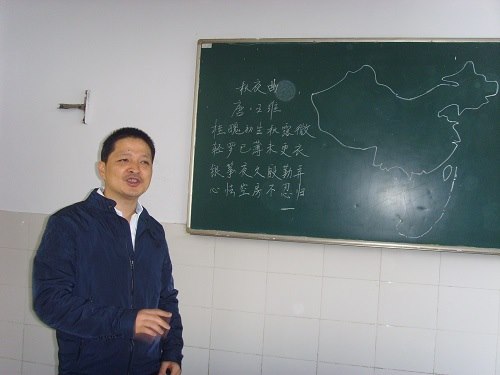 秋夜曲
唐·王维
桂魄初生秋露微
轻罗已薄未更衣
银筝夜久殷勤弄
心怯空房不忍归